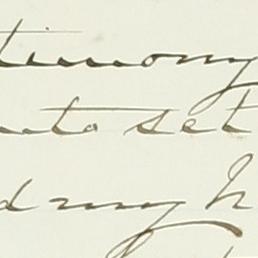 timony
nto set
d my h